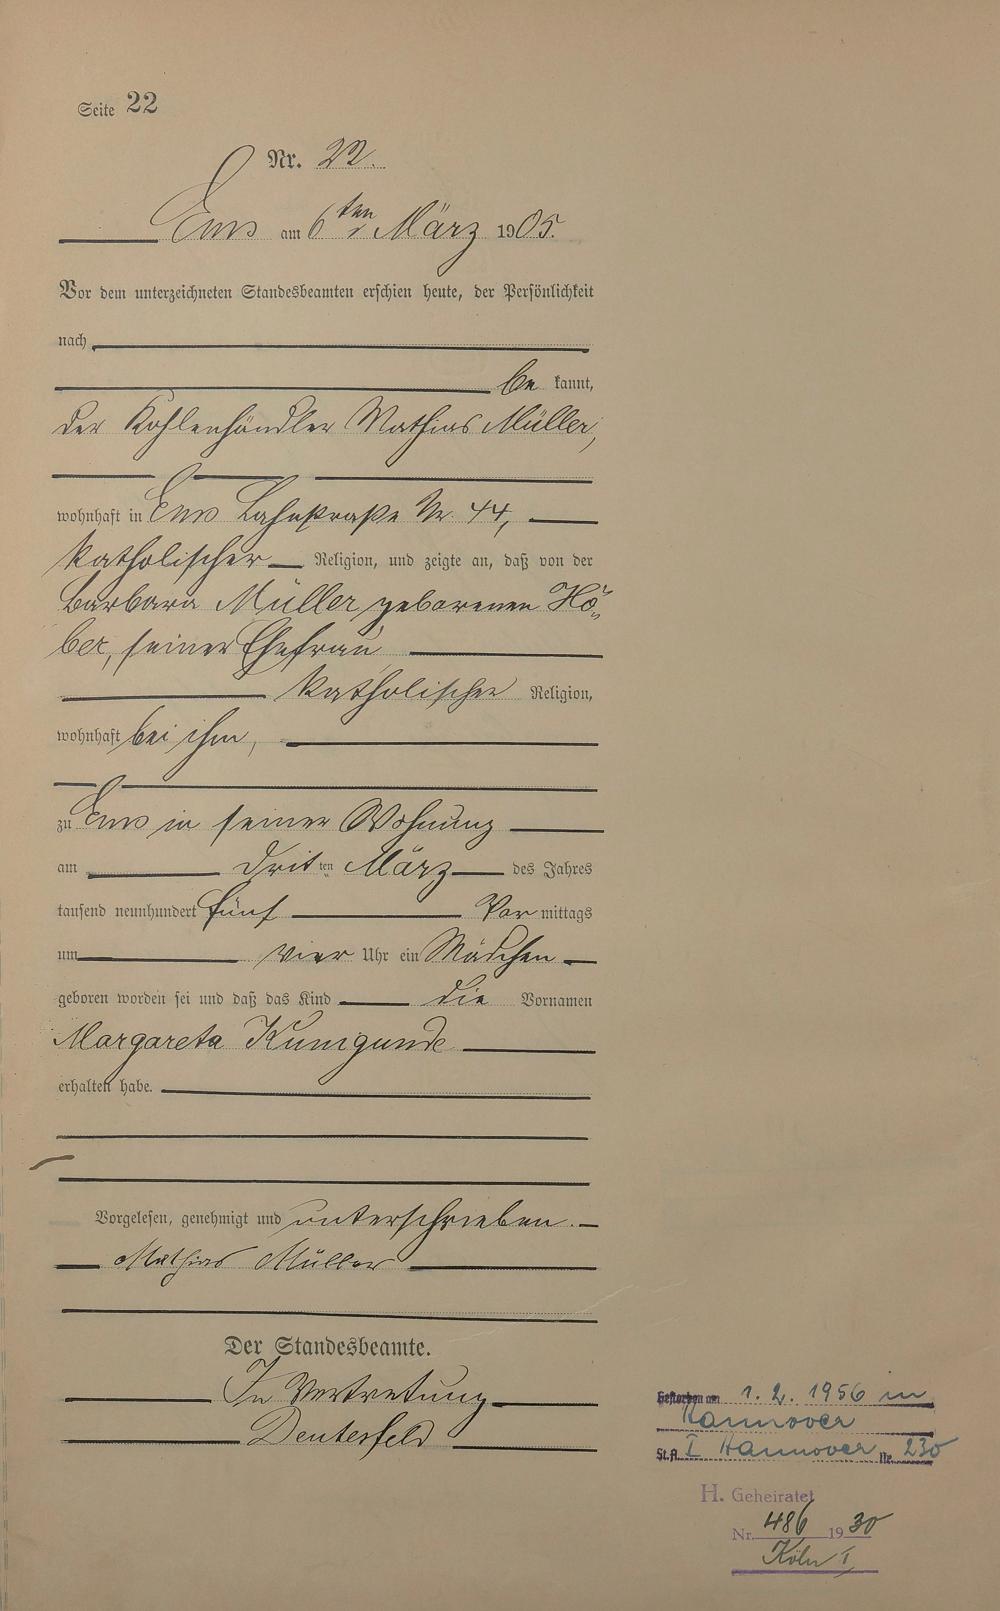 Seite 22
Nr. 22.
Ems am 6ten März 1905.
Vor dem unterzeichneten Standesbeamten erschien heute, der Persönlichkeit
nach
be kannt,
der Kohlenhändler Mathias Müller,
wohnhaft in Ems Lahnstraße Nr. 44,
katholischer Religion, und zeigte an, daß von der
Barbara Müller geborenen Hö-
ber, seiner Ehefrau
katholischer Religion,
wohnhaft bei ihm,
zu Ems in seiner Wohnung
am dritten März des Jahres
tausend neunhundert fünf Vor mittags
um vier Uhr ein Mädchen
geboren worden sei und daß das Kind die Vornamen
Margareta Kunigunde
erhalten habe.
Vorgelesen, genehmigt und unterschrieben.
Mathias Müller
Der Standesbeamte.
In Vertretung
Deutesfeld
Gestorben am 1. 2. 1956 in
Hannover
St.A. I Hannover Nr. 230
H. Geheiratet
Nr. 486 1930
Köln I